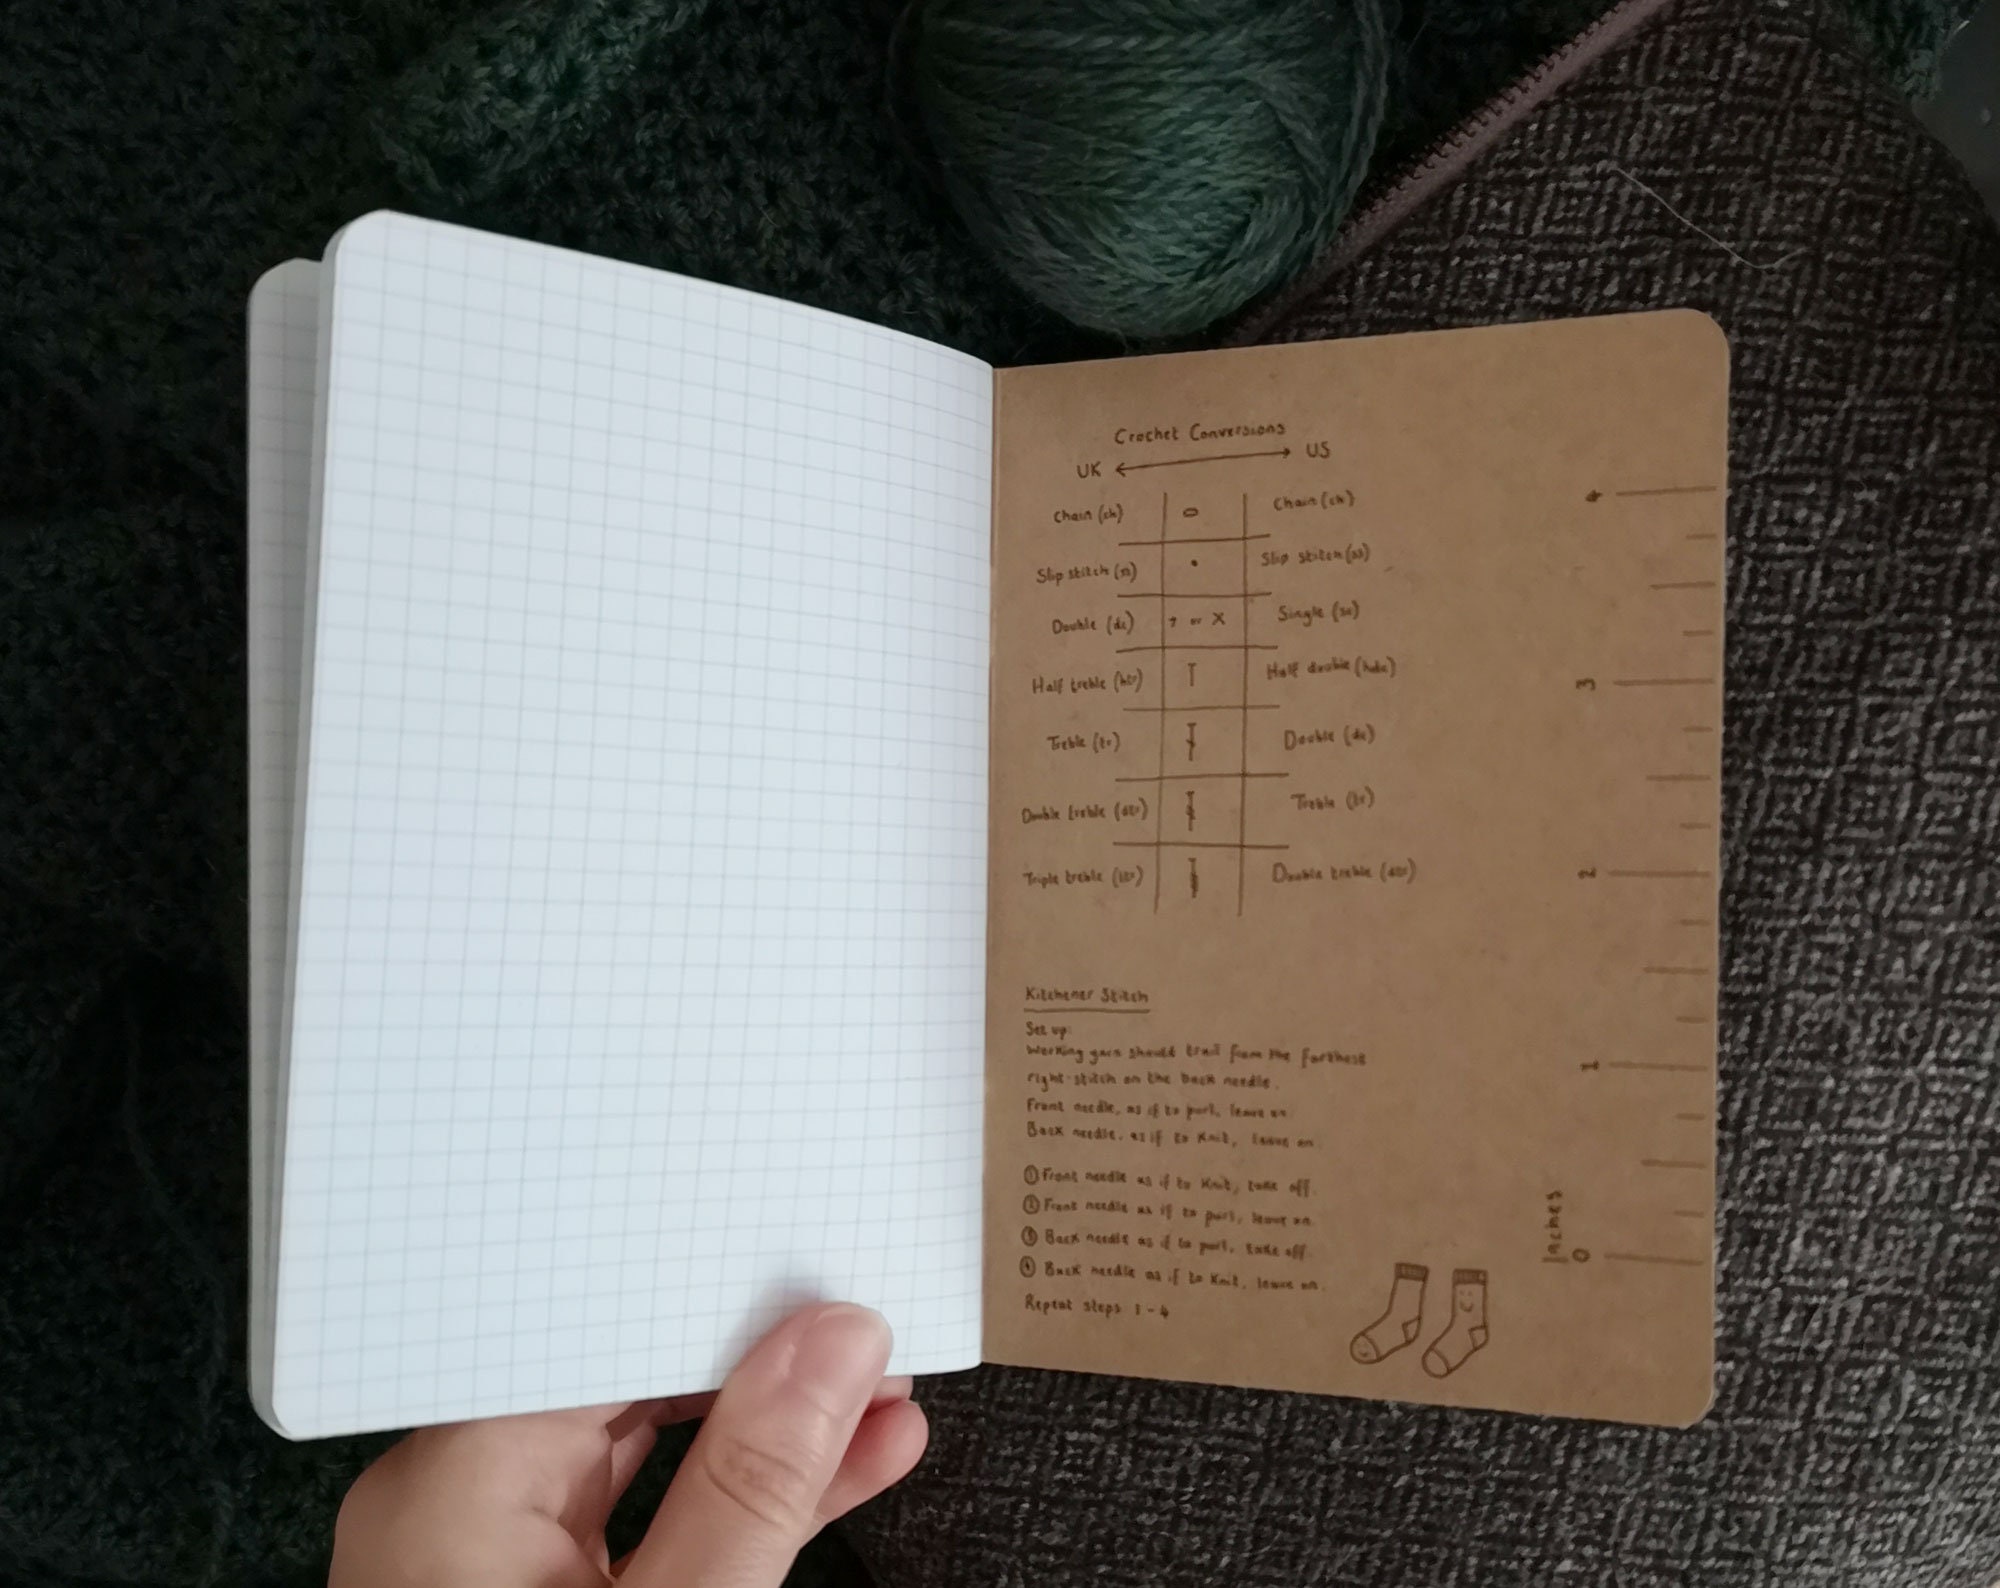 Crochet Conversions
UK US
Chain (ch) Chain (ch)
Slip stitch (ss) Slip stitch (ss)
Double (dc) + or X Single (sc)
Half treble (htr) Half double (hdc)
Treble (tr) Double (dc)
Double treble (dtr) Treble (tr)
Triple treble (ttr) Double treble (dtr)
Kitchener Stitch
Set up:
Working yarn should trail from the farthest
right stitch on the back needle.
Front needle, as if to purl, leave on.
Back needle, as if to Knit, leave on.
① Front needle as if to Knit, take off.
② Front needle as if to purl, leave on.
③ Back needle as if to purl, take off.
④ Back needle as if to Knit, leave on.
Repeat steps 1 - 4
4
3
2
1
0
Inches